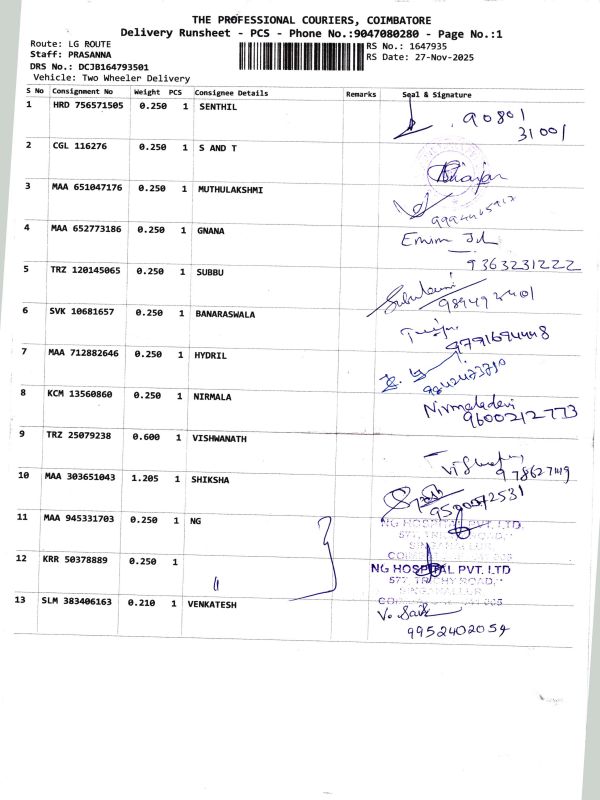 THE PROFESSIONAL COURIERS, COIMBATORE
Delivery Runsheet - PCS - Phone No.:9047080280 - Page No.:1
Route: LG ROUTE
Staff: PRASANNA
DRS No.: DCJB164793501
Vehicle: Two Wheeler Delivery
RS No.: 1647935
RS Date: 27-Nov-2025
S No Consignment No Weight PCS Consignee Details Remarks Seal & Signature
1 HRD 756571505 0.250 1 SENTHIL 90801
31001
2 CGL 116276 0.250 1 S AND T
3 MAA 651047176 0.250 1 MUTHULAKSHMI
4 MAA 652773186 0.250 1 GNANA
9363231222
5 TRZ 120145065 0.250 1 SUBBU
6 SVK 10681657 0.250 1 BANARASWALA
9791694448
7 MAA 712882646 0.250 1 HYDRIL
8 KCM 13560860 0.250 1 NIRMALA Nirmaladevi
9600212773
9 TRZ 25079238 0.600 1 VISHWANATH
10 MAA 303651043 1.205 1 SHIKSHA
9590072531
11 MAA 945331703 0.250 1 NG NG HOSPITAL PVT. LTD.
577, TRICHY ROAD,
SINGANALLUR
12 KRR 50378889 0.250 1 " NG HOSPITAL PVT. LTD
577, TRICHY ROAD,
SINGANALLUR
13 SLM 383406163 0.210 1 VENKATESH
9952402054